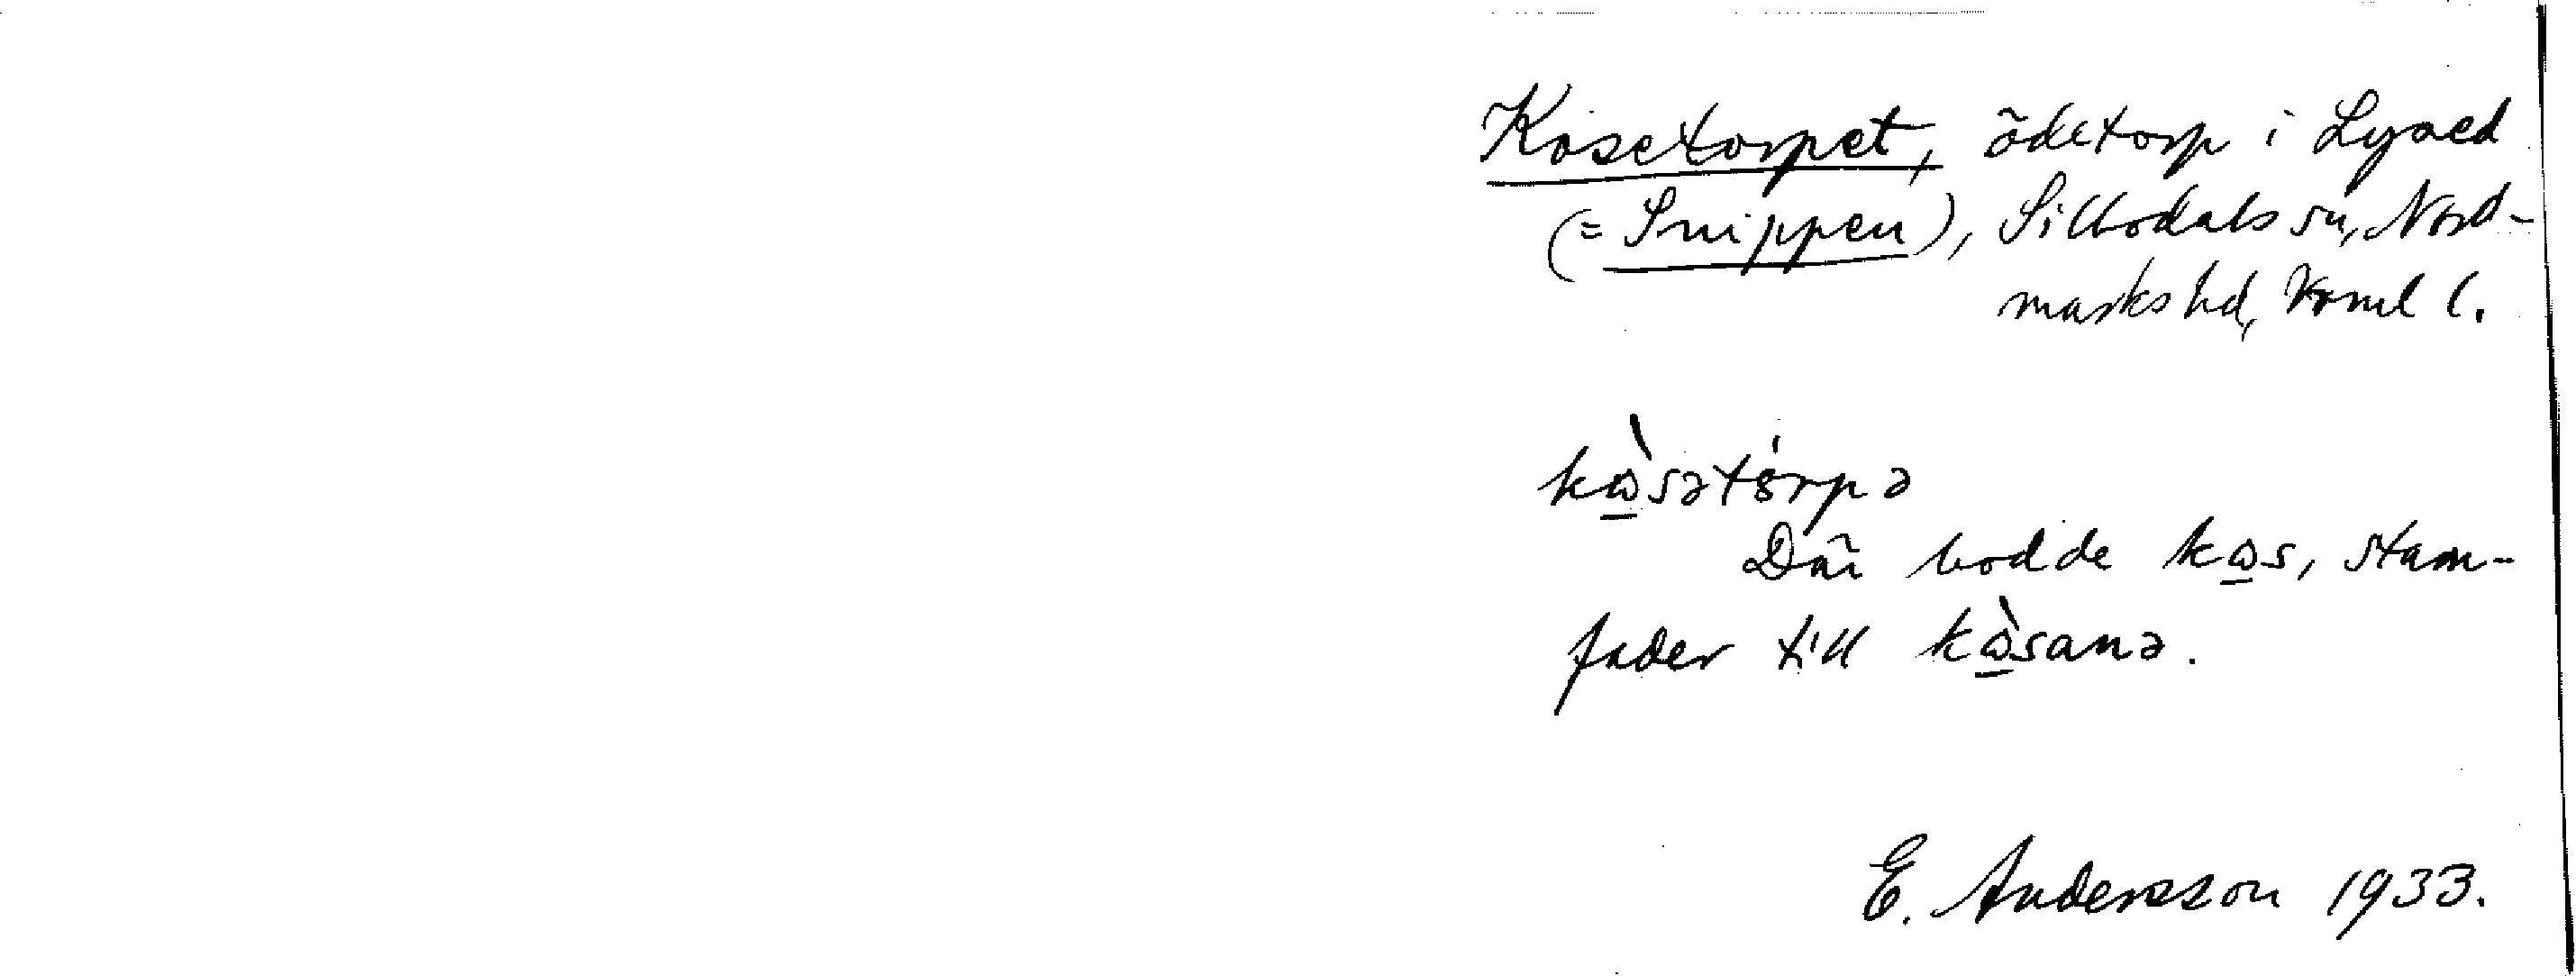 Kosetorpet, ödetorp i Lysed
(= Snippen), Sillbodals sn, Nord-
marks hd, Vrml l.
kὼ̱sətörpə
Där bodde kω̱s, stam-
fader till kὼ̱sanə.
E. Andersson 1933.